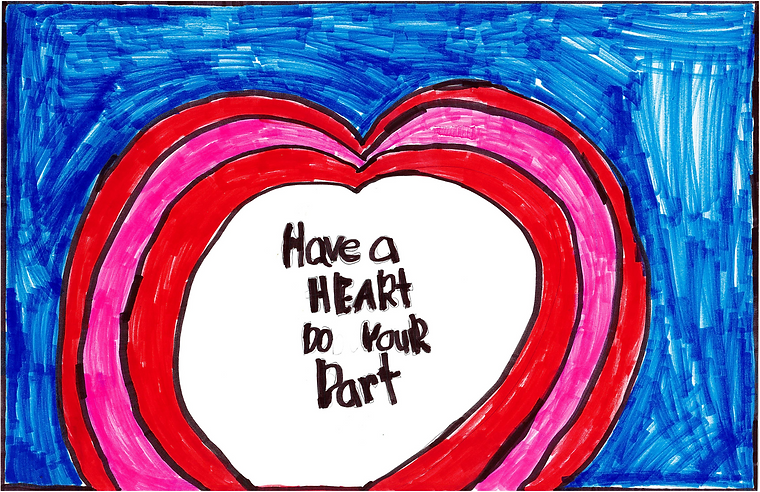 Have a
HEART
DO YouR
Dart